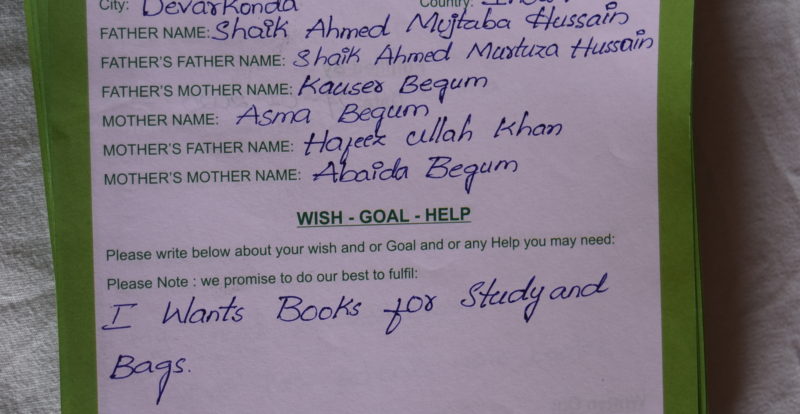 City: Devarkonda Country:
FATHER NAME: Shaik Ahmed Mujtaba Hussain
FATHER'S FATHER NAME: Shaik Ahmed Murtuza Hussain
FATHER'S MOTHER NAME: Kauser Begum
MOTHER NAME: Asma Begum
MOTHER'S FATHER NAME: Hafeez ullah Khan
MOTHER'S MOTHER NAME: Abaida Begum
WISH - GOAL - HELP
Please write below about your wish and or Goal and or any Help you may need:
Please Note : we promise to do our best to fulfil:
I Wants Books for Study and
Bags.